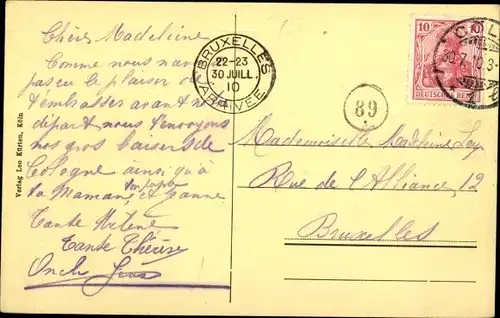 Chère Madeleine
Comme nous n'avons
pas eu le plaisir de
t'embrasser avant notre
départ nous t'envoyons
nos gros baisers de
Cologne ainsi qu'à
ton papa
ta Maman et Jeanne
Tante Hélène
Tante Thérèse
Oncle
Verlag Leo Kürten, Köln
BRUXELLES
22-23
30 JUILL.
10
ARRIVÉE
89
10
DEUTSCHES REICH
30.7.10.3-
Mademoiselle Madeleine
Rue de l'Alliance, 12
Bruxelles